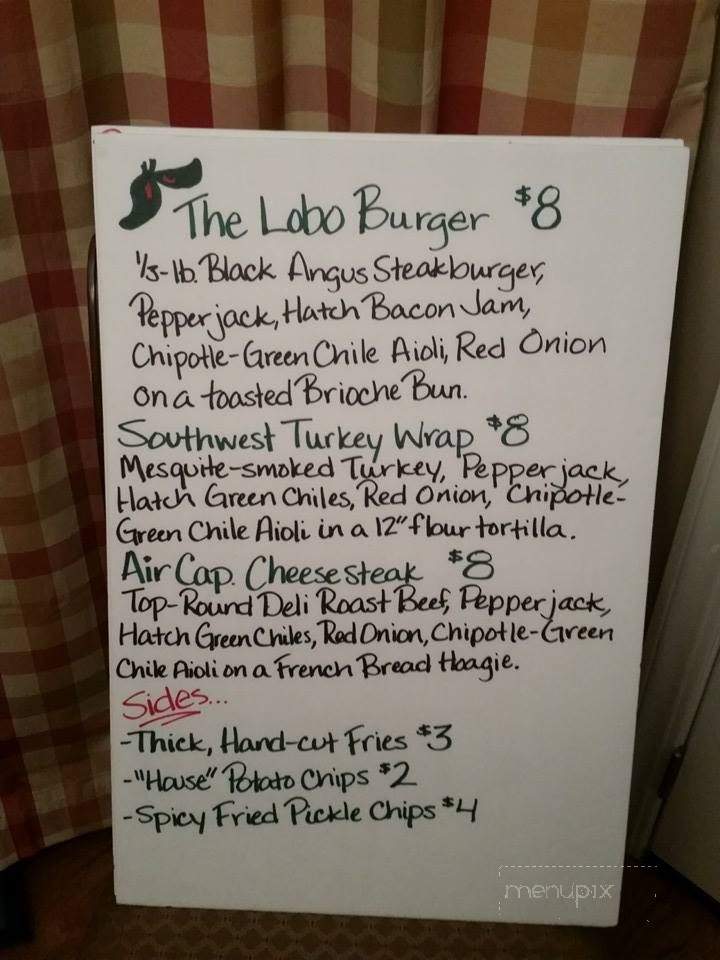 The Lobo Burger $8
1/3-lb. Black Angus Steakburger,
Pepperjack, Hatch Bacon Jam,
Chipotle-Green Chile Aioli, Red Onion
on a toasted Brioche Bun.
Southwest Turkey Wrap $8
Mesquite-smoked Turkey, Pepperjack,
Hatch Green Chiles, Red Onion, Chipotle-
Green Chile Aioli in a 12" flour tortilla.
Air Cap. Cheesesteak $8
Top-Round Deli Roast Beef, Pepperjack,
Hatch Green Chiles, Red Onion, Chipotle-Green
Chile Aioli on a French Bread Hoagie.
Sides...
-Thick, Hand-cut Fries $3
-"House" Potato Chips $2
-Spicy Fried Pickle Chips $4
menupix